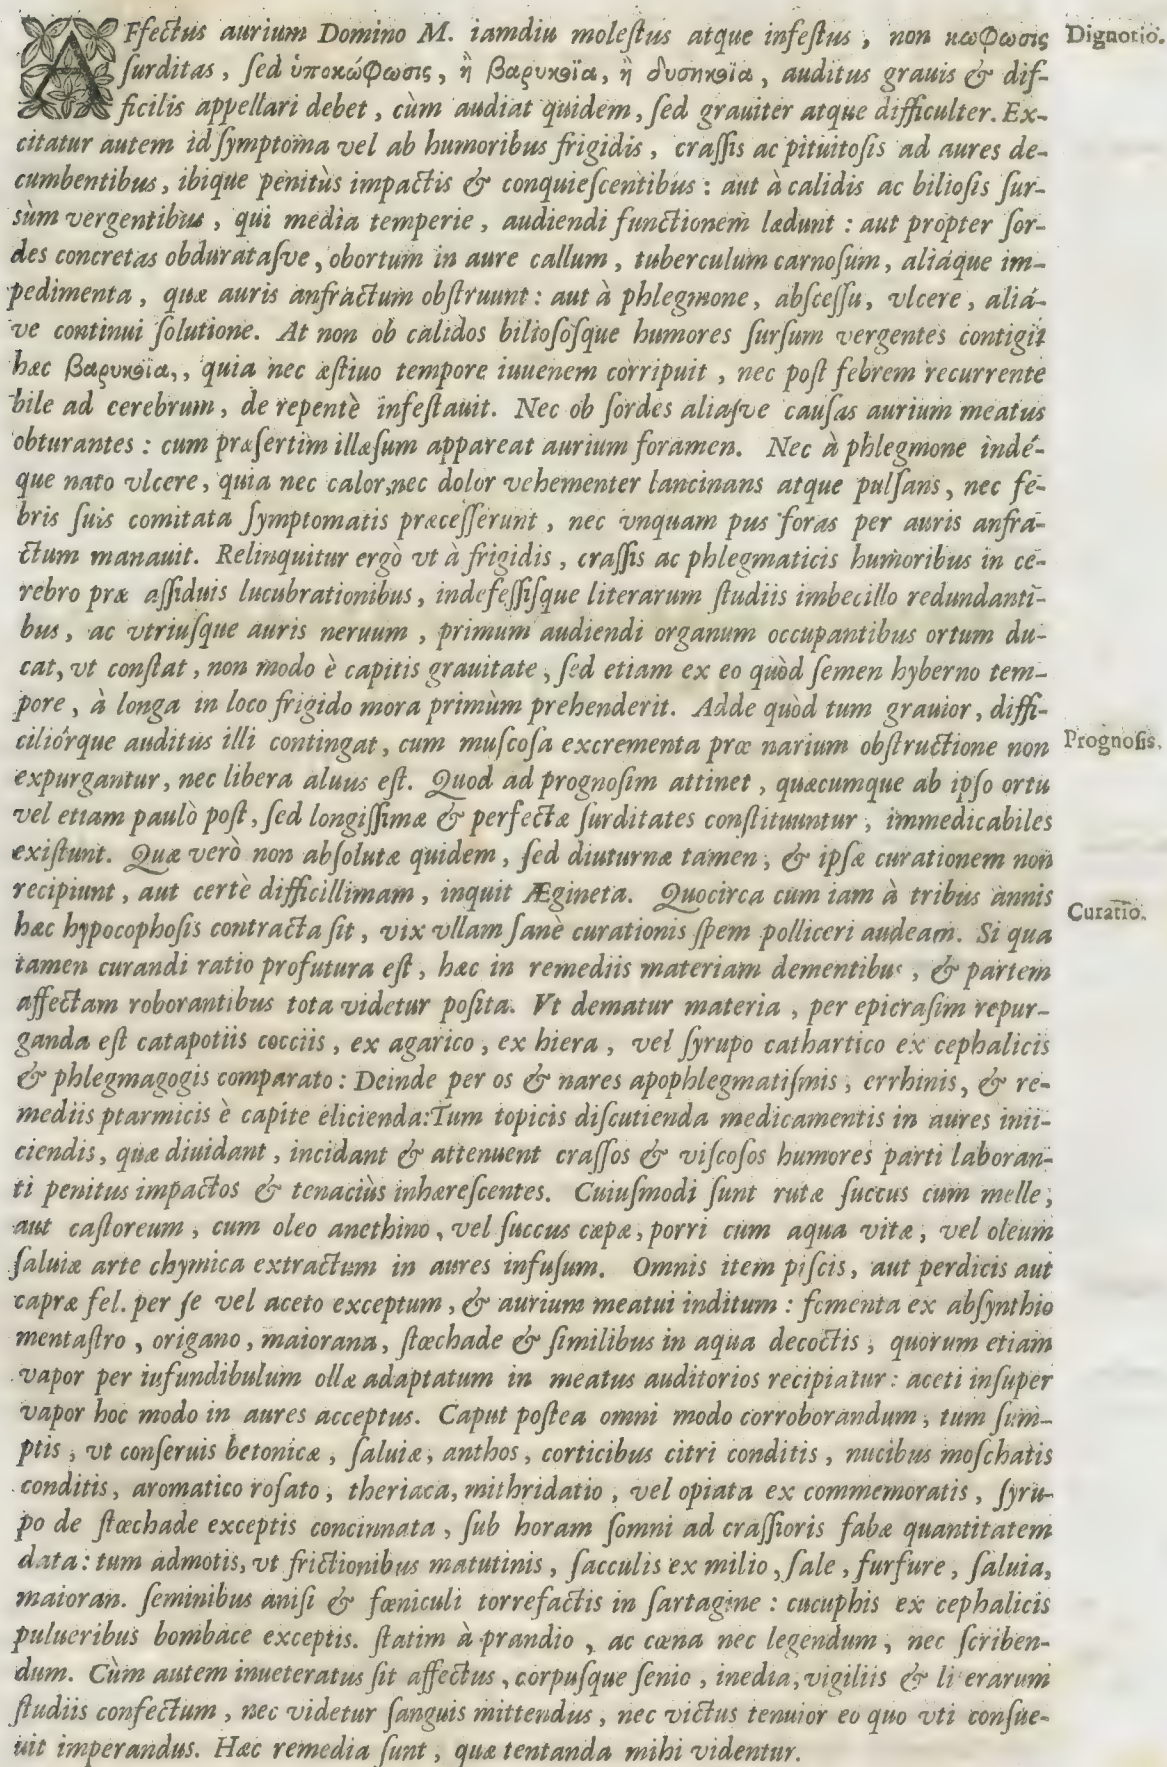 AFfectus aurium Domino M. iamdiu molestus atque infestus, non κωφωσις Dignotio.
surditas, sed ὑποκώφωσις, ἢ βαρυκοΐα, ἢ δυσηκοΐα, auditus grauis & dif-
ficilis appellari debet, cùm audiat quidem, sed grauiter atque difficulter. Ex-
citatur autem id symptoma vel ab humoribus frigidis, crassis ac pituitosis ad aures de-
cumbentibus, ibique penitùs impactis & conquiescentibus: aut à calidis ac biliosis sur-
sùm vergentibus, qui media temperie, audiendi functionem lædunt: aut propter sor-
des concretas obduratasve, obortum in aure callum, tuberculum carnosum, aliáque im-
pedimenta, quæ auris anfractum obstruunt: aut à phlegmone, abscessu, vlcere, aliá-
ve continui solutione. At non ob calidos biliososque humores sursum vergentes contigit
hæc βαρυκοΐα,, quia nec æstiuo tempore iuuenem corripuit, nec post febrem recurrente
bile ad cerebrum, de repentè infestauit. Nec ob sordes aliasve causas aurium meatus
obturantes: cum præsertim illæsum appareat aurium foramen. Nec à phlegmone indé-
que nato vlcere, quia nec calor, nec dolor vehementer lancinans atque pulsans, nec fe-
bris suis comitata symptomatis præcesserunt, nec vnquam pus foras per auris anfra-
ctum manauit. Relinquitur ergò vt à frigidis, crassis ac phlegmaticis humoribus in ce-
rebro præ assiduis lucubrationibus, indefessisque literarum studiis imbecillo redundanti-
bus, ac vtriusque auris neruum, primum audiendi organum occupantibus ortum du-
cat, vt constat, non modo è capitis grauitate, sed etiam ex eo quòd semen hyberno tem-
pore, à longa in loco frigido mora primùm prehenderit. Adde quòd tum grauior, diffi-
ciliórque auditus illi contingat, cum muscosa excrementa præ narium obstructione non Prognosis.
expurgantur, nec libera aluus est. Quod ad prognosim attinet, quæcumque ab ipso ortu
vel etiam paulò post, sed longissimæ & perfectæ surditates constituuntur, immedicabiles
existunt. Quæ verò non absolutæ quidem, sed diuturnæ tamen, & ipsæ curationem non
recipiunt, aut certè difficillimam, inquit Ægineta. Quocirca cum iam à tribus annis
hæc hypocophosis contracta sit, vix vllam sanè curationis spem polliceri audeam. Si qua Curatio.
tamen curandi ratio profutura est, hæc in remediis materiam dementibus, & partem
affectam roborantibus tota videtur posita. Vt dematur materia, per epicrasim repur-
ganda est catapotiis cocciis, ex agarico, ex hiera, vel syrupo cathartico ex cephalicis
& phlegmagogis comparato: Deinde per os & nares apophlegmatismis, errhinis, & re-
mediis ptarmicis è capite elicienda: Tum topicis discutienda medicamentis in aures inii-
ciendis, quæ diuidant, incidant & attenuent crassos & viscosos humores parti laboran-
ti penitus impactos & tenaciùs inhærescentes. Cuiusmodi sunt rutæ succus cum melle,
aut castoreum, cum oleo anethino, vel succus cæpæ, porri cum aqua vitæ, vel oleum
saluiæ arte chymica extractum in aures infusum. Omnis item piscis, aut perdicis aut
capræ fel. per se vel aceto exceptum, & aurium meatui inditum: fomenta ex absynthio
mentastro, origano, maiorana, stœchade & similibus in aqua decoctis, quorum etiam
vapor per iufundibulum ollæ adaptatum in meatus auditorios recipiatur: aceti insuper
vapor hoc modo in aures acceptus. Caput postea omni modo corroborandum, tum sum-
ptis, vt conseruis betonicæ, saluiæ, anthos, corticibus citri conditis, nucibus moschatis
conditis, aromatico rosato, theriaca, mithridatio, vel opiata ex commemoratis, syru-
po de stœchade exceptis concinnata, sub horam somni ad crassioris fabæ quantitatem
data: tum admotis, vt frictionibus matutinis, sacculis ex milio, sale, furfure, saluia,
maioran. seminibus anisi & fœniculi torrefactis in sartagine: cucuphis ex cephalicis
pulueribus bombace exceptis. statim à prandio, ac cœna nec legendum, nec scriben-
dum. Cùm autem inueteratus sit affectus, corpusque senio, inedia, vigiliis & li erarum
studiis confectum, nec videtur sanguis mittendus, nec victus tenuior eo quo vti consue-
uit imperandus. Hæc remedia sunt, quæ tentanda mihi videntur.